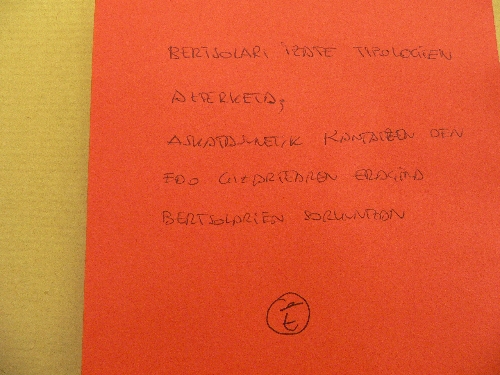 BERTSOLARI IZATE TIPOLOGIEN
AZTERKETA;
ASKATASUNETIK KANTATZEN DEN
EDO GIZARTEAREN ERAGINA
BERTSOLARIEN SORKUNTZAN